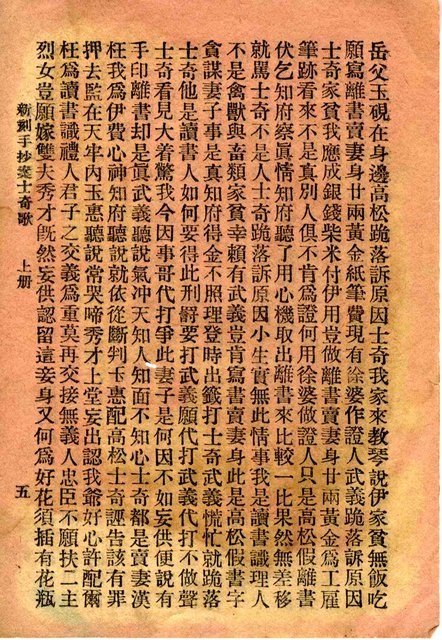 岳父玉硯在身邊高松跪落訴原因士奇我家來教琴說伊家貧無飯吃
願寫離書賣妻身廿兩黃金紙筆費現有徐婆作證人武義跪落訴原因
士奇家貧我應成銀錢柴米付伊用豈做離書賣妻身廿兩黃金爲工雇
筆跡看來不是真別人俱不肯爲證何用徐婆做證人只是高松假離書
伏乞知府察眞情知府聽了用心機取出離書來比較一比果然無差移
就罵士奇不是人士奇跪落訴原因小生實無此情事我是讀書識理人
不是禽獸與畜類家貧幸賴有武義豈肯寫書賣妻身此是高松假書字
貪謀妻子事是真知府得金不照理登時出籤打士奇武義慌忙就跪落
士奇他是讀書人如何要得此刑罸要打武義願代打武義代打不做聲
士奇看見大着驚我今因事哥代打爭此妻子是何因不如妄供便說有
手印離書却是眞武義聽說氣冲天知人知面不知心士奇都是賣妻漢
枉我爲伊費心神知府聽說就依從斷判玉惠配高松士奇誣告該有罪
押去監在天牢內玉惠聽說常哭啼秀才上堂妄出認我爺好心許配爾
枉爲讀書識禮人君子之交義爲重莫再交接無義人忠臣不願扶二主
烈女豈願嫁雙夫秀才旣然妄供認留這妾身又何爲好花須插有花瓶
新刻手抄士奇歌 上册 五